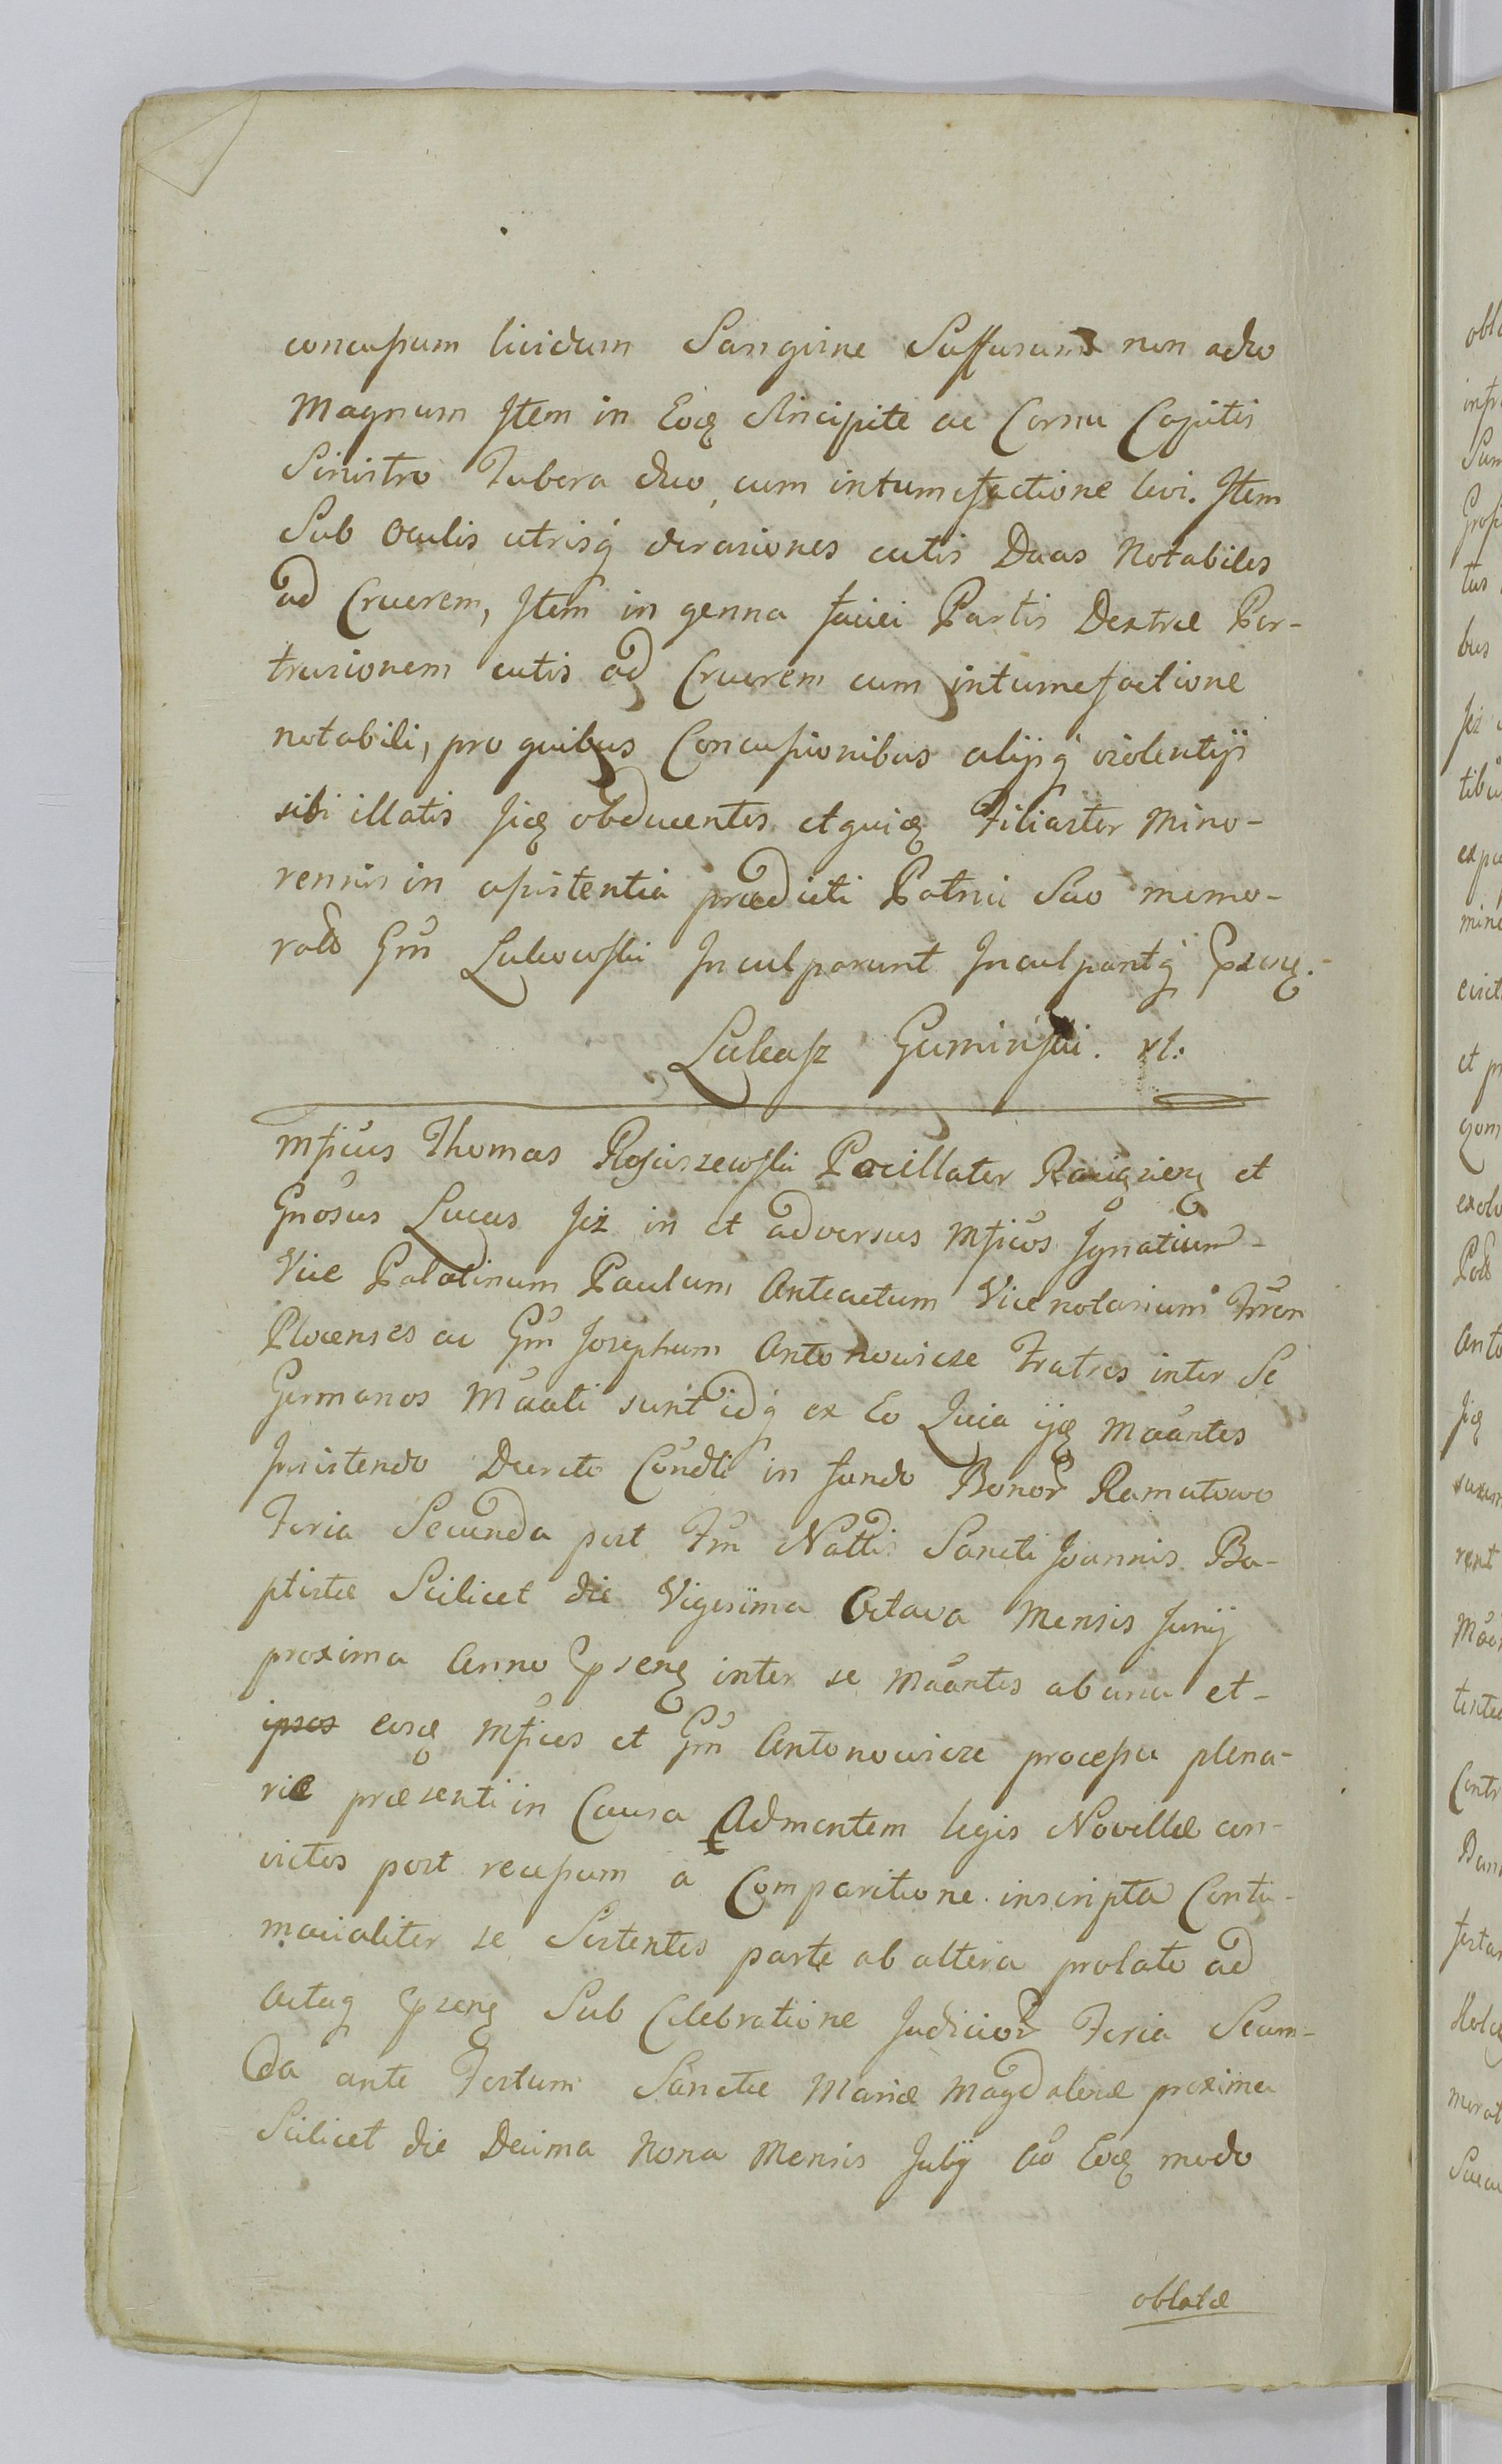 concussum lividum Sanguine Suffusum non adeo
Magnum Item in Eoq Sincipite ac Cornu Capitis
Sinistro Tubera duo, cum intumefactione levi. Item
Sub Oculis utrisq derasiones cutis Duas Notabiles
ad Cruorem, Item in genna faciei Partis Dextræ Per-
trusionem cutis ad Cruorem cum intumefactione
notabili, pro quibus Concussionibus alijsq violentijs
sibi illatis sicq obducentes etquiq Filiaster Mino-
rennis in assistentia prædicti Patrui Suo memo-
rato Gm Lukowski Inculparunt Inculpantq
Lukasz Guminski.
Mficus Thomas Rosciszewski Pocillator Raciązien et
Gnosus Lucas Jeż in et adversus Mficos Ignatium
Vice Palatinum Paulum Antecutum Vicenotarium Trren
Plocenses ac Gm Josephum Antonowicze Fratres inter Se
Germanos Maati sunt idq ex Eo Quia ijq Maantes
Insistendo Decreto Condti in fundo Bonor Ramutowo
Feria Secunda post Fm Nattis Sancti Joannis Ba-
ptistæ Scilicet die Vigesima Octava Mensis Junij
proxima Anno pseng inter se Maantes ab una et
ipsos eosq Mficos et Gm Antonowicze processu plena-
rie præsenti in Causa Admentem legis Novellæ con-
victos post recessum a Comparitione inscripta Contu-
macialiter se Sistentes parte ab altera prolato ad
Actaq pseng Sub Celebratione Judicior Feria Secun-
da ante Festum Sanctæ Mariæ Magdalenæ proxima
Scilicet die Decima Nona Mensis Julij Ao Eoq modo
oblatæ